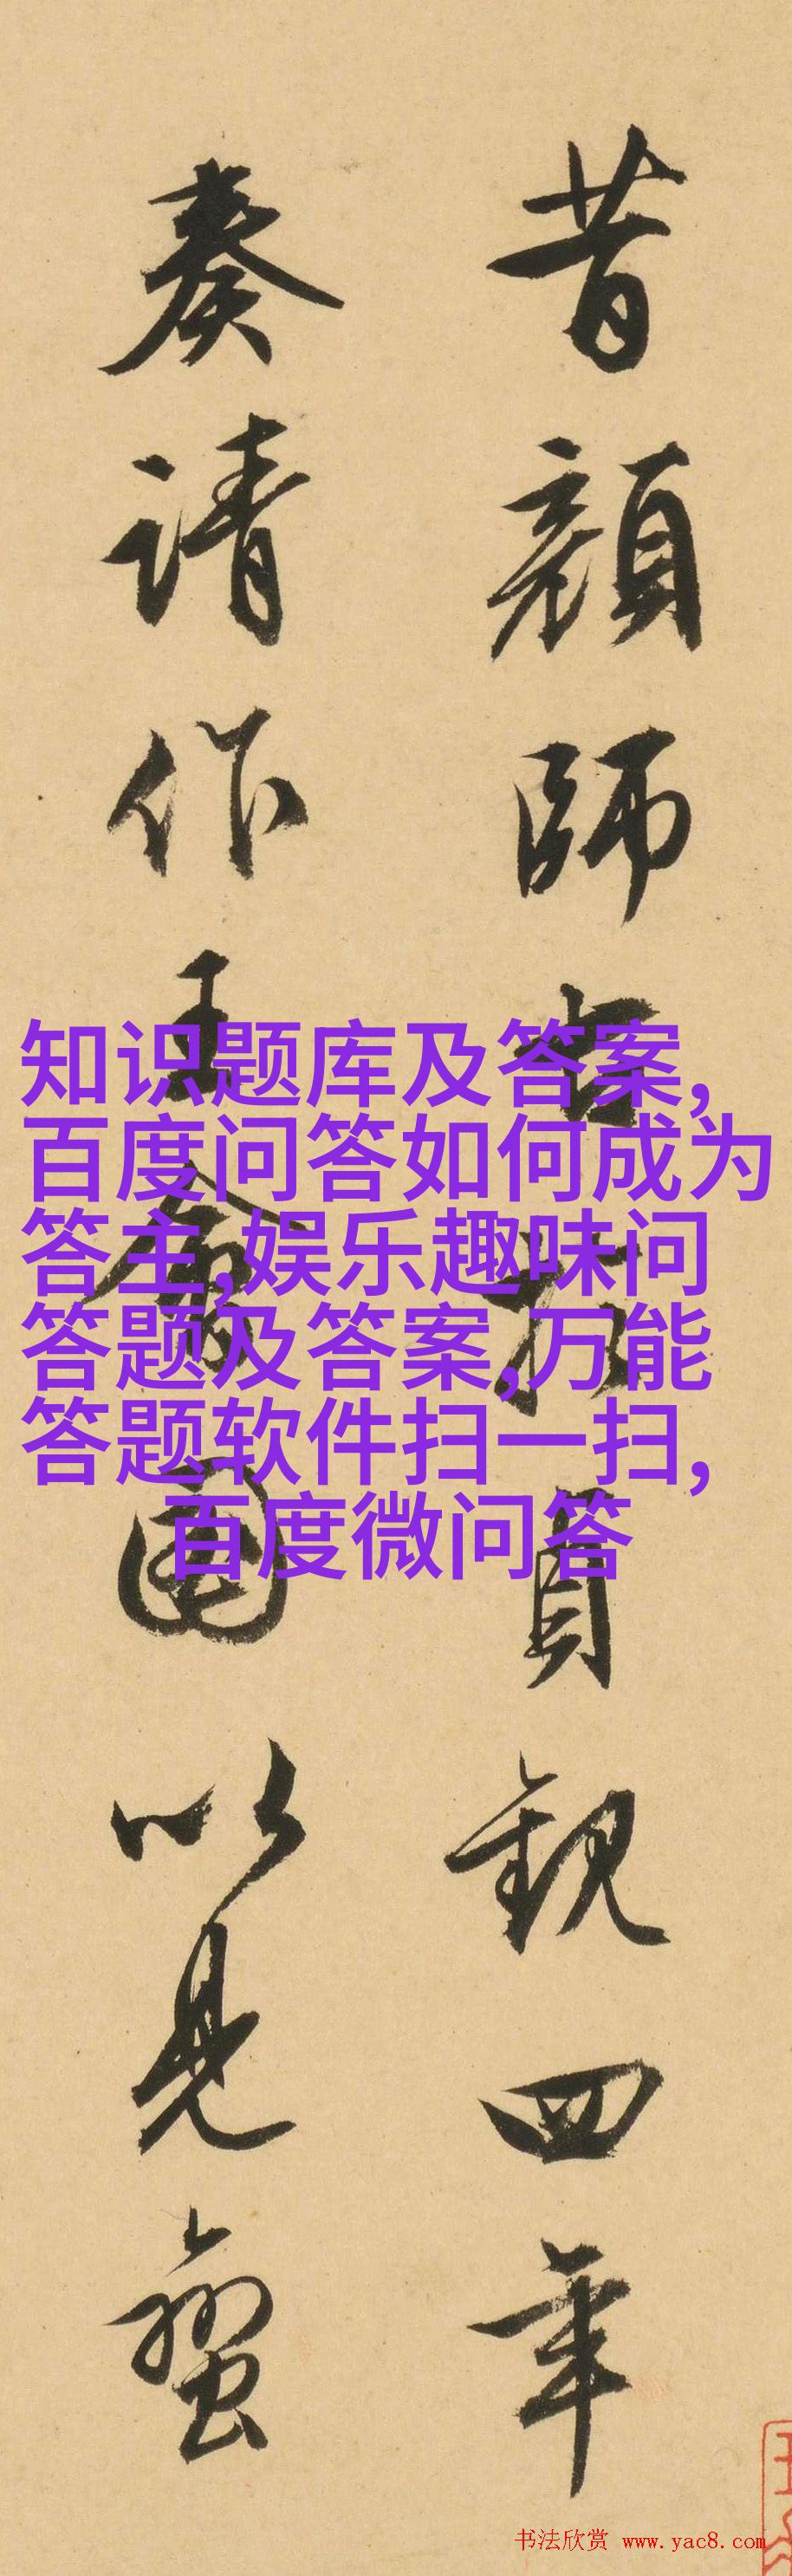 昔顔師古於貞観四年
奏請作王會圖以見蠻
知识题库及答案,
百度问答如何成为
答主,娱乐趣味问
答题及答案,万能
答题软件扫一扫,
百度微问答
书法欣赏 www.yac8.com